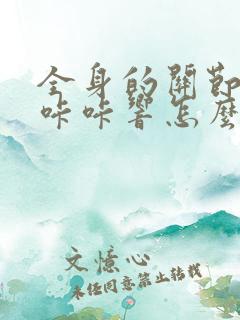 全身的關節
咔咔響怎麼
文憶心
未經同意禁止轉載